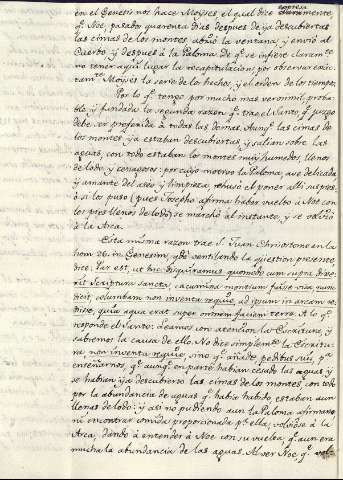 en el Genesis nos hace Moyses, el qual dice expresamente,
qe. Noe, pasado quarenta dias despues de ya descubiertas
las cimas de los montes abrió la ventana, y envió al
Cuerbo y despues à la Paloma, de qe. se infiere claramte.
no tener aqui lugar la recapitulacion por observar exac-
tamte. Moyses la serie de los hechos, y el orden de los tiempos.
Por lo qe. tengo por mucho mas verosimil, proba-
ble, y fundada la segunda razon qe. trae el Santo, qe. juzgo
debe ser preferida à todas las demas. Aunqe. las cimas de
los montes ya estaban descubiertas y salian sobre las
aguas, con todo estaban los montes muy humedos, llenos
de lodo, y cenagosos: por cuyo motivo la Paloma, ave delicada
y amante del aseo, y limpieza, rehusó el poner alli sus pies:
ó si los puso (pues Josepho afirma haber vuelto à Noe con
los pies llenos de lodo) se marchó al instante, y se volvió
à la Arca.
Esta misma razon trae S. Juan Chrisostomo en la
hom. 26. in Genesim, qdo. sentilando la question presente
dice: Par est, ut hic disquiramus quomodo cum supra dixe-
rit Scriptura sancta, cacumina montium fuisse visa, nunc
dicit, columbam non inventa requie, ad ipsum in arcam re-
disse, quia aqua erat super omnem faciem terræ. A lo qe.
responde el Santo: Leamos con atencion la Escritura, y
sabremos la causa de ello. No dice simplemte. la Escritu-
ra non inventa requie, sino qe. añade pedibus suis, pa.
enseñarnos, qe. aunqe. en parte habian cesado las aguas y
se habian ya descubierto las cimas de los montes, con todo
por la abundancia de aguas qe. habia habido, estaban aun
llenas de lodo: y asi no pudiendo aun la Paloma afirmarse
ni encontrar comida proporcionada pa. ella, volvióse à la
Arca, dando à entender à Noe con su vuelta, qe. aun era
mucha la abundancia de las aguas. Al ver Noe qe. vol-